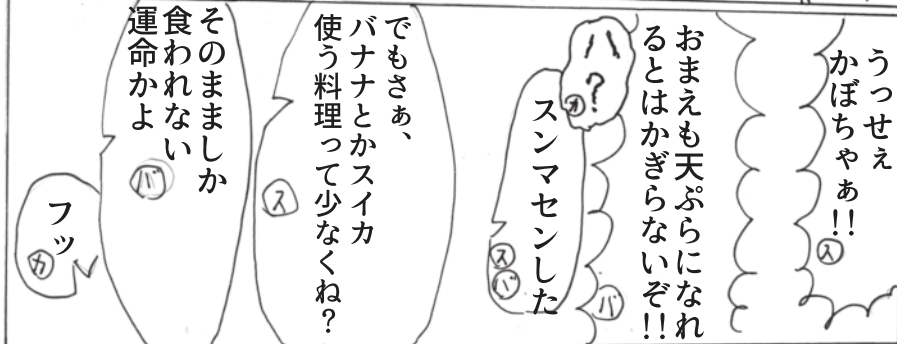 うっせぇ
かぼちゃぁ!!
ス
おまえも天ぷらになれ
るとはかぎらないぞ!!
バ
?
カ
スンマセンした
ス
バ
でもさぁ、
バナナとかスイカ
使う料理って少なくね?
ス
そのまましか
食われない
運命かよ
バ
フッ
カ